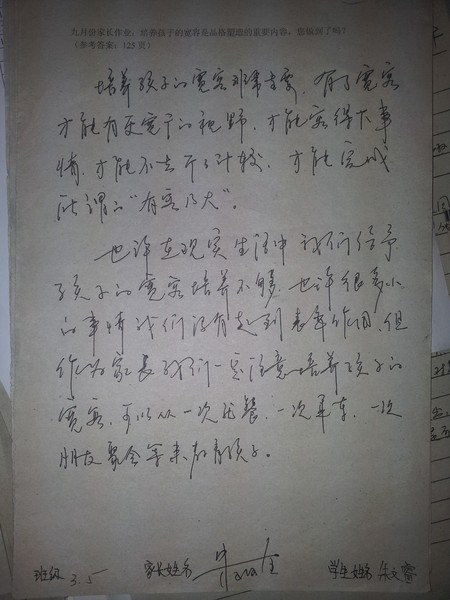 九月份家长作业：培养孩子的宽容是品格塑造的重要内容，您做到了吗？
（参考答案：125页）
培养孩子的宽容非常重要，有了宽容
才能有更宽广的视野，才能容得下事
情，才能不去斤斤计较，才能完成
所谓的“有容乃大”。
也许在现实生活中我们给予
孩子的宽容培养不够，也许很多小
的事情我们没有起到表率作用，但
作为家长我们一定注意培养孩子的
宽容，可以从一次用餐，一次乘车，一次
朋友聚会等来教育孩子。
班级 3.5 家长姓名 学生姓名 朱文